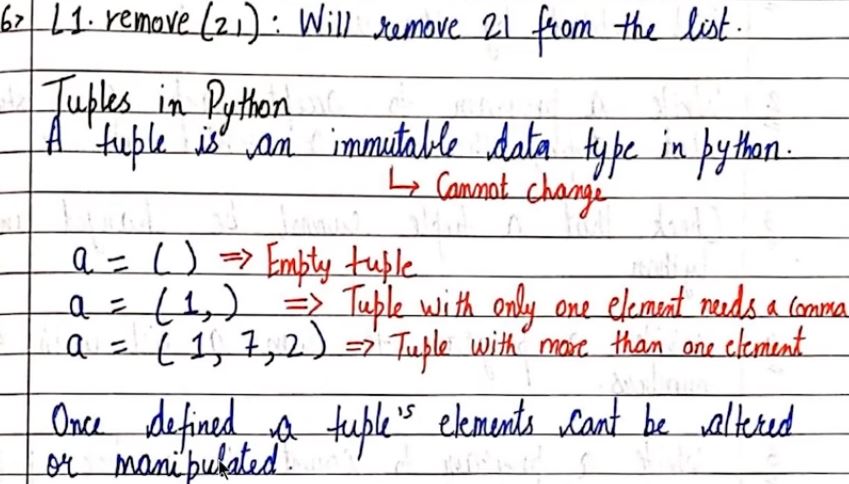 6> L1.remove(21): Will remove 21 from the list.
Tuples in Python
A tuple is an immutable data type in python.
↳ Cannot change
a = ( ) => Empty tuple
a = (1,) => Tuple with only one element needs a comma
a = (1, 7, 2) => Tuple with more than one element
Once defined a tuple's elements cant be altered
or manipulated.